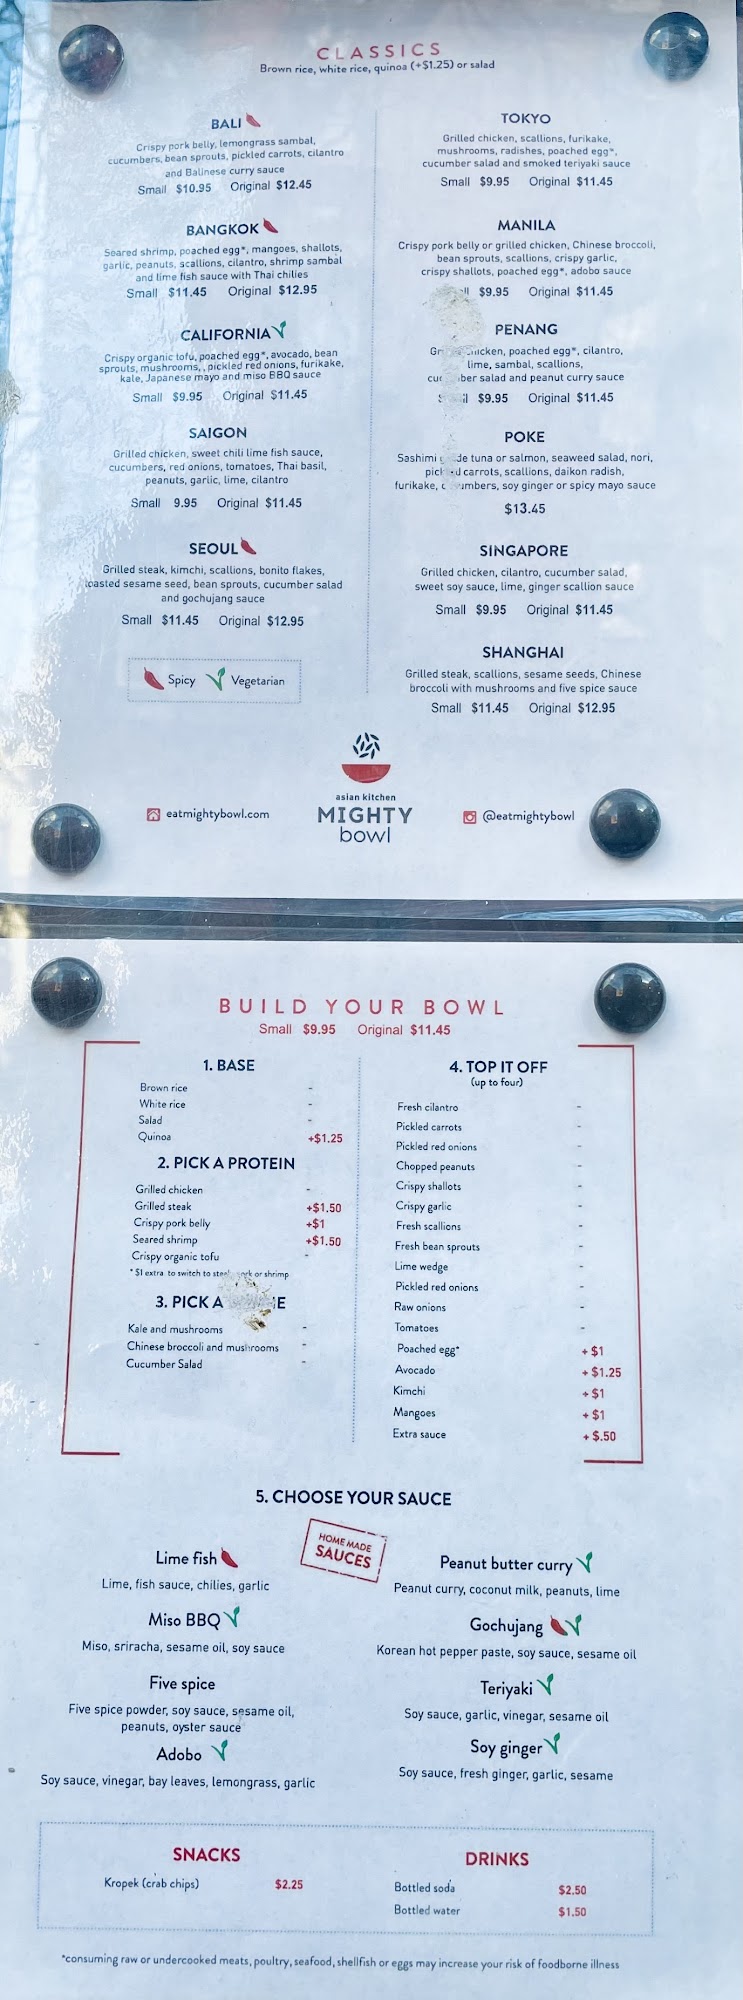 CLASSICS
Brown rice, white rice, quinoa (+$1.25) or salad
BALI
Crispy pork belly, lemongrass sambal,
cucumbers, bean sprouts, pickled carrots, cilantro
and Balinese curry sauce
Small $10.95 Original $12.45
BANGKOK
Seared shrimp, poached egg*, mangoes, shallots,
garlic, peanuts, scallions, cilantro, shrimp sambal
and lime fish sauce with Thai chilies
Small $11.45 Original $12.95
CALIFORNIA
Crispy organic tofu, poached egg*, avocado, bean
sprouts, mushrooms, , pickled red onions, furikake,
kale, Japanese mayo and miso BBQ sauce
Small $9.95 Original $11.45
SAIGON
Grilled chicken, sweet chili lime fish sauce,
cucumbers, red onions, tomatoes, Thai basil,
peanuts, garlic, lime, cilantro
Small 9.95 Original $11.45
SEOUL
Grilled steak, kimchi, scallions, bonito flakes,
toasted sesame seed, bean sprouts, cucumber salad
and gochujang sauce
Small $11.45 Original $12.95
Spicy Vegetarian
TOKYO
Grilled chicken, scallions, furikake,
mushrooms, radishes, poached egg*,
cucumber salad and smoked teriyaki sauce
Small $9.95 Original $11.45
MANILA
Crispy pork belly or grilled chicken, Chinese broccoli,
bean sprouts, scallions, crispy garlic,
crispy shallots, poached egg*, adobo sauce
$9.95 Original $11.45
PENANG
chicken, poached egg*, cilantro,
lime, sambal, scallions,
cucumber salad and peanut curry sauce
$9.95 Original $11.45
POKE
Sashimi grade tuna or salmon, seaweed salad, nori,
pickled carrots, scallions, daikon radish,
furikake, cucumbers, soy ginger or spicy mayo sauce
$13.45
SINGAPORE
Grilled chicken, cilantro, cucumber salad,
sweet soy sauce, lime, ginger scallion sauce
Small $9.95 Original $11.45
SHANGHAI
Grilled steak, scallions, sesame seeds, Chinese
broccoli with mushrooms and five spice sauce
Small $11.45 Original $12.95
eatmightybowl.com
asian kitchen
MIGHTY
bowl
@eatmightybowl
BUILD YOUR BOWL
Small $9.95 Original $11.45
1. BASE
Brown rice -
White rice -
Salad -
Quinoa +$1.25
2. PICK A PROTEIN
Grilled chicken -
Grilled steak +$1.50
Crispy pork belly +$1
Seared shrimp +$1.50
Crispy organic tofu -
* $1 extra to switch to steak, pork or shrimp
3. PICK A
Kale and mushrooms -
Chinese broccoli and mushrooms -
Cucumber Salad -
4. TOP IT OFF
(up to four)
Fresh cilantro -
Pickled carrots -
Pickled red onions -
Chopped peanuts -
Crispy shallots -
Crispy garlic -
Fresh scallions -
Fresh bean sprouts -
Lime wedge -
Pickled red onions -
Raw onions -
Tomatoes -
Poached egg* + $1
Avocado + $1.25
Kimchi + $1
Mangoes + $1
Extra sauce + $.50
5. CHOOSE YOUR SAUCE
HOME MADE
SAUCES
Lime fish
Lime, fish sauce, chilies, garlic
Miso BBQ
Miso, sriracha, sesame oil, soy sauce
Five spice
Five spice powder, soy sauce, sesame oil,
peanuts, oyster sauce
Adobo
Soy sauce, vinegar, bay leaves, lemongrass, garlic
Peanut butter curry
Peanut curry, coconut milk, peanuts, lime
Gochujang
Korean hot pepper paste, soy sauce, sesame oil
Teriyaki
Soy sauce, garlic, vinegar, sesame oil
Soy ginger
Soy sauce, fresh ginger, garlic, sesame
SNACKS
Kropek (crab chips) $2.25
DRINKS
Bottled soda $2.50
Bottled water $1.50
*consuming raw or undercooked meats, poultry, seafood, shellfish or eggs may increase your risk of foodborne illness